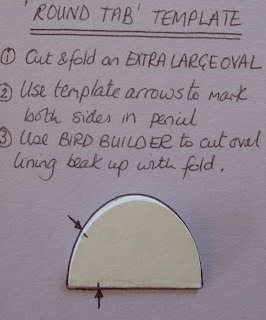 'ROUND TAB' TEMPLATE
① Cut & fold an EXTRA LARGE OVAL
② Use template arrows to mark
both sides in pencil
③ Use BIRD BUILDER to cut oval
lining beak up with fold.